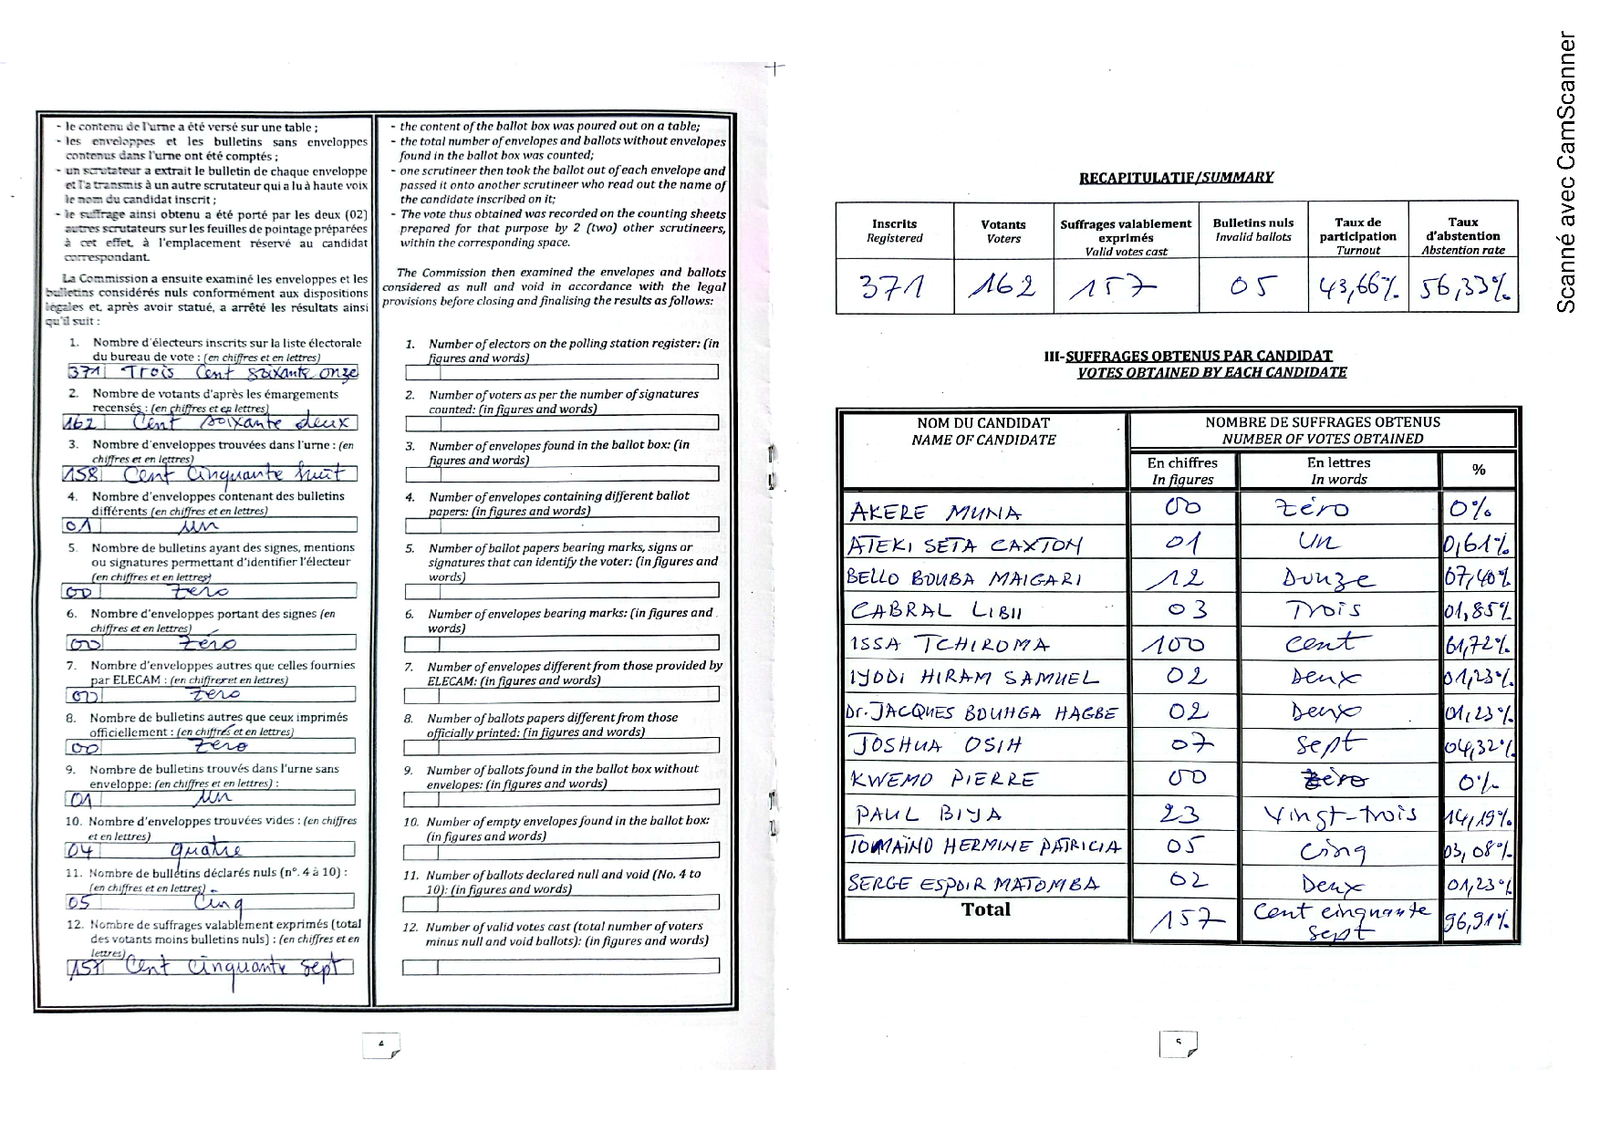 - le contenu de l'urne a été versé sur une table ;
- les enveloppes et les bulletins sans enveloppes
contenus dans l'urne ont été comptés ;
- un scrutateur a extrait le bulletin de chaque enveloppe
et l'a transmis à un autre scrutateur qui a lu à haute voix
le nom du candidat inscrit ;
- le suffrage ainsi obtenu a été porté par les deux (02)
autres scrutateurs sur les feuilles de pointage préparées
à cet effet, à l'emplacement réservé au candidat
correspondant.
La Commission a ensuite examiné les enveloppes et les
bulletins considérés nuls conformément aux dispositions
légales et, après avoir statué, a arrêté les résultats ainsi
qu'il suit :
1. Nombre d'électeurs inscrits sur la liste électorale
du bureau de vote : (en chiffres et en lettres)
371 Trois Cent soixante onze
2. Nombre de votants d'après les émargements
recensés : (en chiffres et en lettres)
162 Cent soixante deux
3. Nombre d'enveloppes trouvées dans l'urne : (en
chiffres et en lettres)
158 Cent cinquante huit
4. Nombre d'enveloppes contenant des bulletins
différents (en chiffres et en lettres)
01 un
5. Nombre de bulletins ayant des signes, mentions
ou signatures permettant d'identifier l'électeur
(en chiffres et en lettres)
00 zero
6. Nombre d'enveloppes portant des signes (en
chiffres et en lettres)
00 zéro
7. Nombre d'enveloppes autres que celles fournies
par ELECAM : (en chiffres et en lettres)
00 zero
8. Nombre de bulletins autres que ceux imprimés
officiellement : (en chiffres et en lettres)
00 zero
9. Nombre de bulletins trouvés dans l'urne sans
enveloppe: (en chiffres et en lettres) :
01 un
10. Nombre d'enveloppes trouvées vides : (en chiffres
et en lettres)
04 quatre
11. Nombre de bulletins déclarés nuls (n°. 4 à 10) :
(en chiffres et en lettres)
05 Cinq
12. Nombre de suffrages valablement exprimés (total
des votants moins bulletins nuls) : (en chiffres et en
lettres)
157 Cent cinquante sept
- the content of the ballot box was poured out on a table;
- the total number of envelopes and ballots without envelopes
found in the ballot box was counted;
- one scrutineer then took the ballot out of each envelope and
passed it onto another scrutineer who read out the name of
the candidate inscribed on it;
- The vote thus obtained was recorded on the counting sheets
prepared for that purpose by 2 (two) other scrutineers,
within the corresponding space.
The Commission then examined the envelopes and ballots
considered as null and void in accordance with the legal
provisions before closing and finalising the results as follows:
1. Number of electors on the polling station register: (in
figures and words)
2. Number of voters as per the number of signatures
counted: (in figures and words)
3. Number of envelopes found in the ballot box: (in
figures and words)
4. Number of envelopes containing different ballot
papers: (in figures and words)
5. Number of ballot papers bearing marks, signs or
signatures that can identify the voter: (in figures and
words)
6. Number of envelopes bearing marks: (in figures and
words)
7. Number of envelopes different from those provided by
ELECAM: (in figures and words)
8. Number of ballots papers different from those
officially printed: (in figures and words)
9. Number of ballots found in the ballot box without
envelopes: (in figures and words)
10. Number of empty envelopes found in the ballot box:
(in figures and words)
11. Number of ballots declared null and void (No. 4 to
10): (in figures and words)
12. Number of valid votes cast (total number of voters
minus null and void ballots): (in figures and words)
4
RECAPITULATIF/SUMMARY
Inscrits Registered | Votants Voters | Suffrages valablement exprimés Valid votes cast | Bulletins nuls Invalid ballots | Taux de participation Turnout | Taux d'abstention Abstention rate
371 162 157 05 43,66% 56,33%
III-SUFFRAGES OBTENUS PAR CANDIDAT
VOTES OBTAINED BY EACH CANDIDATE
NOM DU CANDIDAT NOMBRE DE SUFFRAGES OBTENUS
NAME OF CANDIDATE NUMBER OF VOTES OBTAINED
En chiffres En lettres %
In figures In words
AKERE MUNA 00 zéro 0%
ATEKI SETA CAXTON 01 un 0,61%
BELLO BOUBA MAIGARI 12 Douze 07,40%
CABRAL LIBII 03 Trois 01,85%
ISSA TCHIROMA 100 cent 61,72%
IYODI HIRAM SAMUEL 02 Deux 01,23%
Dr. JACQUES BOUHGA HAGBE 02 Deux 01,23%
JOSHUA OSIH 07 sept 04,32%
KWEMO PIERRE 00 zéro 0%
PAUL BIYA 23 Vingt-trois 14,19%
TOMAÏNO HERMINE PATRICIA 05 cinq 03,08%
SERGE ESPOIR MATOMBA 02 Deux 01,23%
Total 157 Cent cinquante sept 96,91%
5
Scanné avec CamScanner